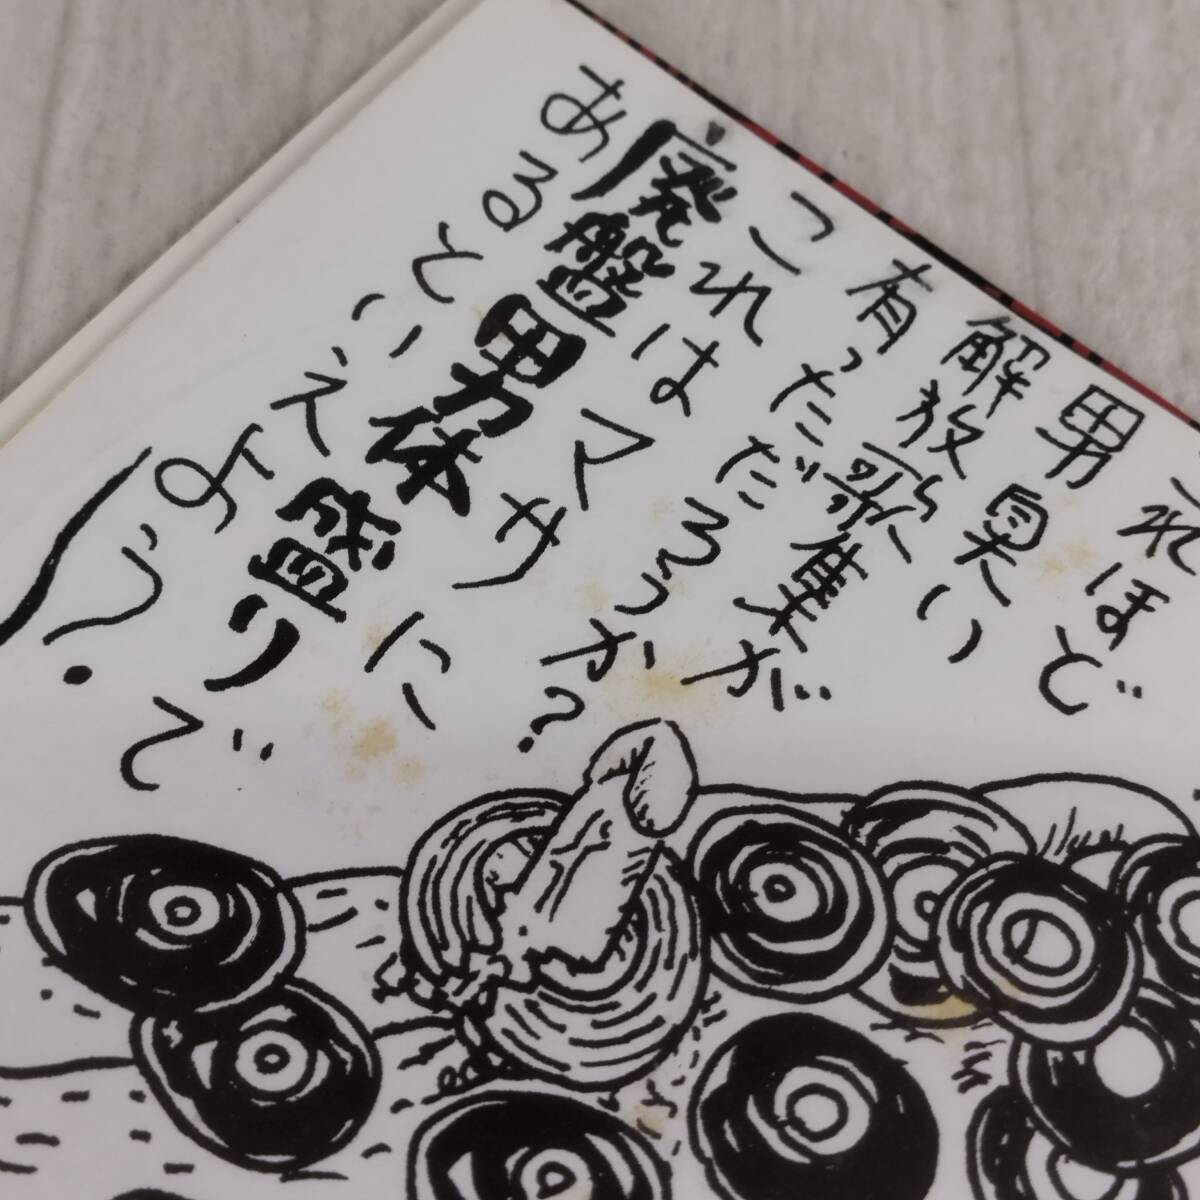 これほど
男臭い
解放歌集が
有っただろうか?
これはマサに
廃盤男体盛りで
あるといえよう.